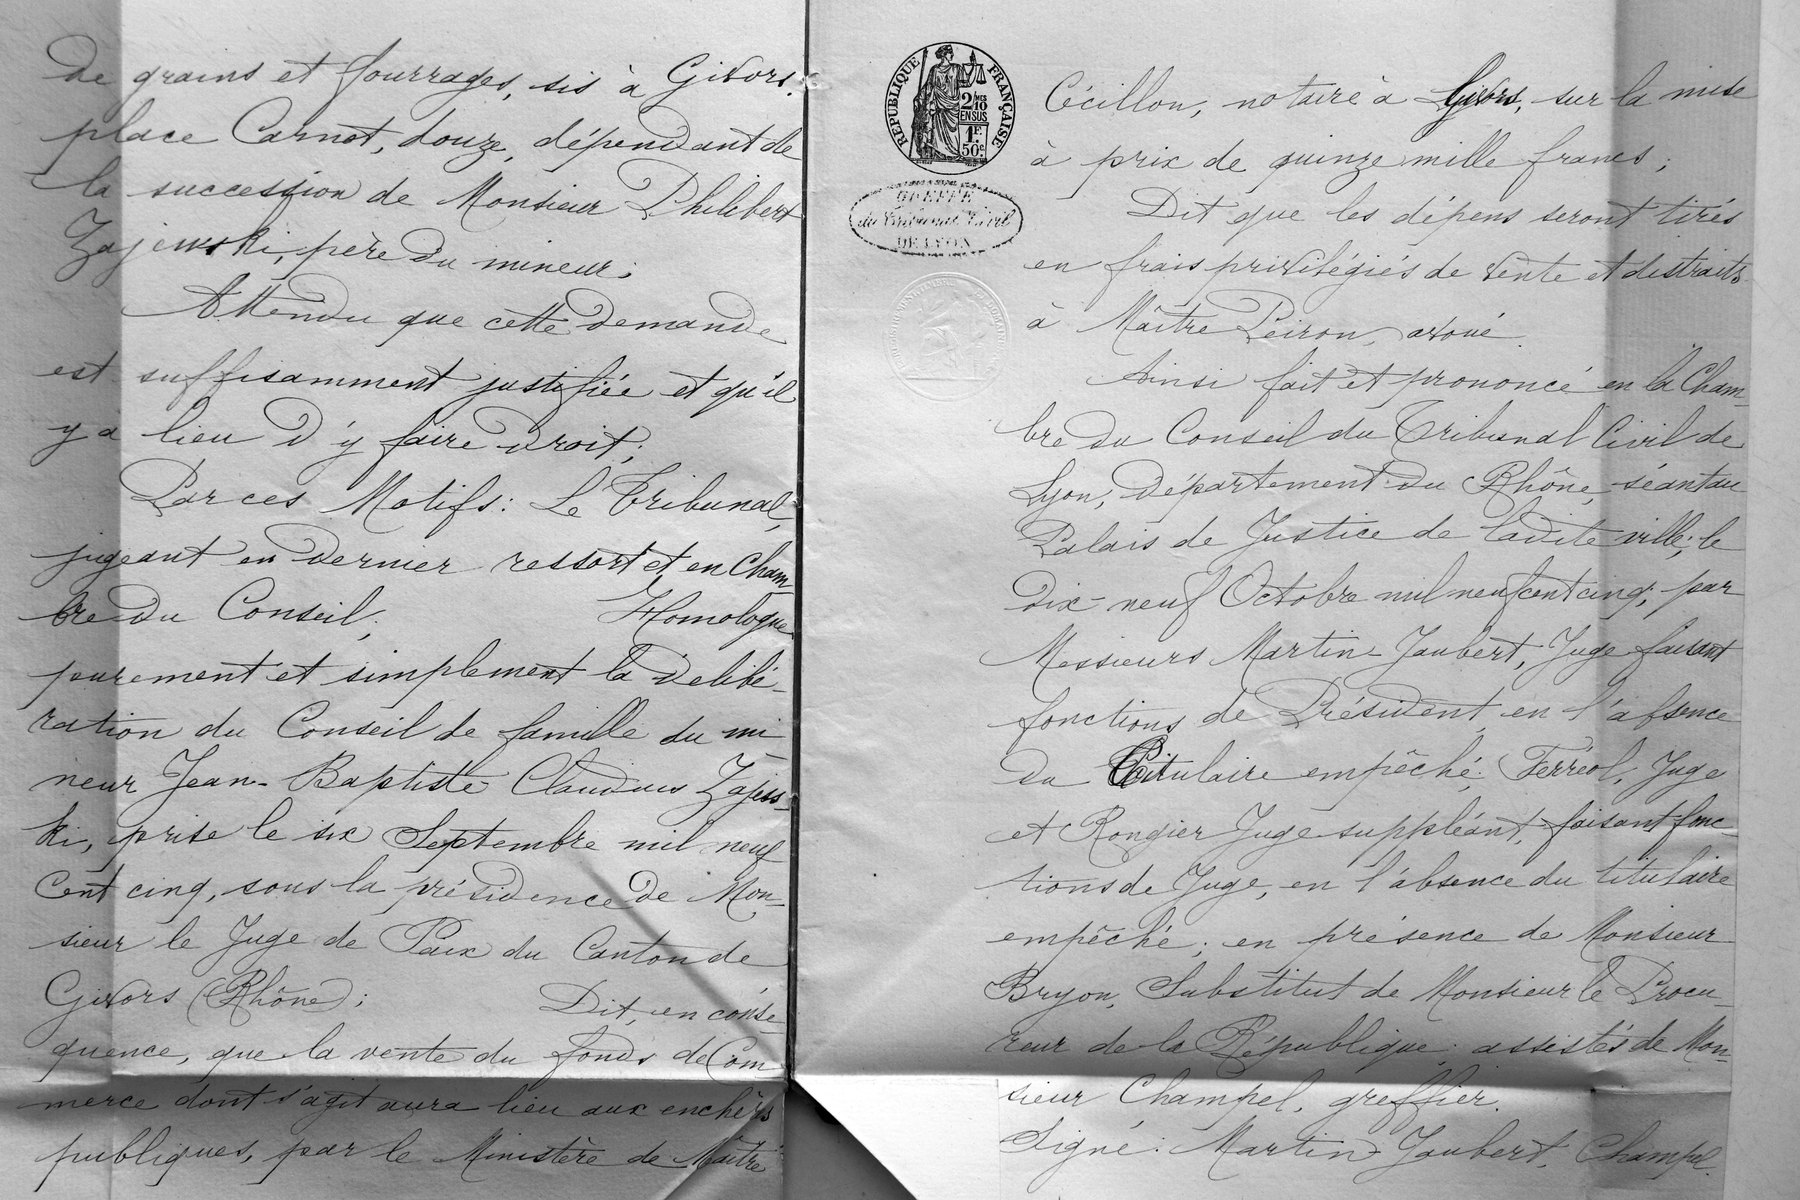 de grains et fourrages, sis à Givors,
place Carnot, douze, dépendant de
la succession de Monsieur Philibert
Zajewski, père du mineur;
Attendu que cette demande
est suffisamment justifiée et qu'il
y a lieu d'y faire droit;
Par ces Motifs: Le Tribunal,
jugeant en dernier ressort et en Cham-
bre du Conseil; Homologue
purement et simplement la délibé-
ration du Conseil de famille du mi-
neur Jean-Baptiste Claudius Zajews-
ki, prise le six Septembre mil neuf
cent cinq, sous la présidence de Mon-
sieur le Juge de Paix du Canton de
Givors (Rhône); Dit, en consé-
quence, que la vente du fonds de Com-
merce dont s'agit aura lieu aux enchères
publiques, par le Ministère de Maître
RÉPUBLIQUE FRANÇAISE
2/10
EN SUS
1F
50c
GREFFE
du Tribunal Civil
DE LYON
Cécillon, notaire à Givors, sur la mise
à prix de quinze mille francs;
Dit que les dépens seront tirés
en frais privilégiés de vente et distraits
à Maître Peiron, avoué.
Ainsi fait et prononcé en la Cham-
bre du Conseil du Tribunal Civil de
Lyon, département du Rhône, séant au
Palais de Justice de ladite ville, le
dix-neuf Octobre mil neuf cent cinq; par
Messieurs Martin-Jaubert, Juge faisant
fonctions de Président en l'absence
du Titulaire empêché; Ferréol, Juge
et Rongier Juge suppléant, faisant fonc-
tions de Juge, en l'absence du titulaire
empêché; en présence de Monsieur
Bryon, Substitut de Monsieur le Procu-
reur de la République; assistés de Mon-
sieur Champel, greffier.
Signé: Martin-Jaubert, Champel.